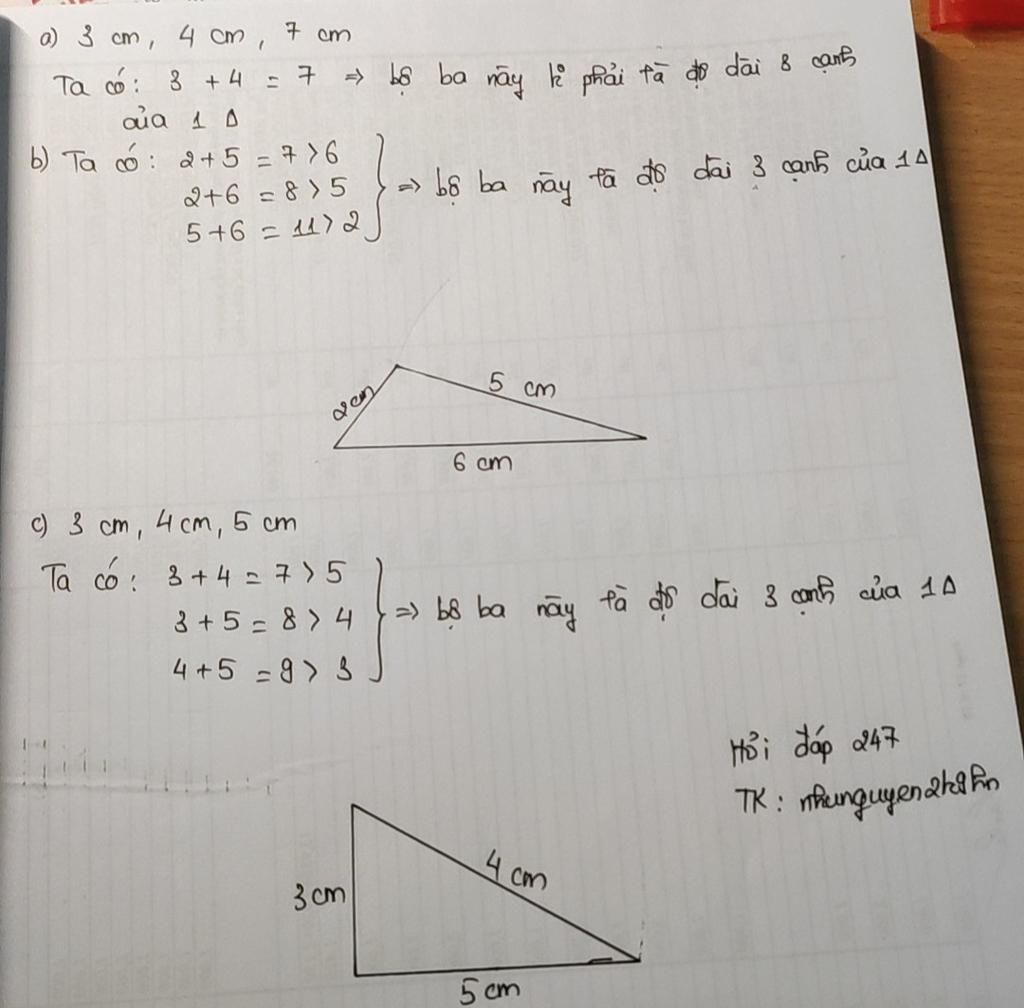 a) 3 cm, 4 cm, 7 cm
Ta có: 3 + 4 = 7 => bộ ba này k phải là độ dài 3 cạnh
của 1 Δ
b) Ta có: 2+5 = 7 > 6
2+6 = 8 > 5
5+6 = 11 > 2
=> bộ ba này là độ dài 3 cạnh của 1 Δ
2 cm
5 cm
6 cm
c) 3 cm, 4 cm, 5 cm
Ta có: 3 + 4 = 7 > 5
3 + 5 = 8 > 4
4 + 5 = 9 > 3
=> bộ ba này là độ dài 3 cạnh của 1 Δ
Hỏi đáp 247
TK: nhunguyen2k9hn
3 cm
4 cm
5 cm